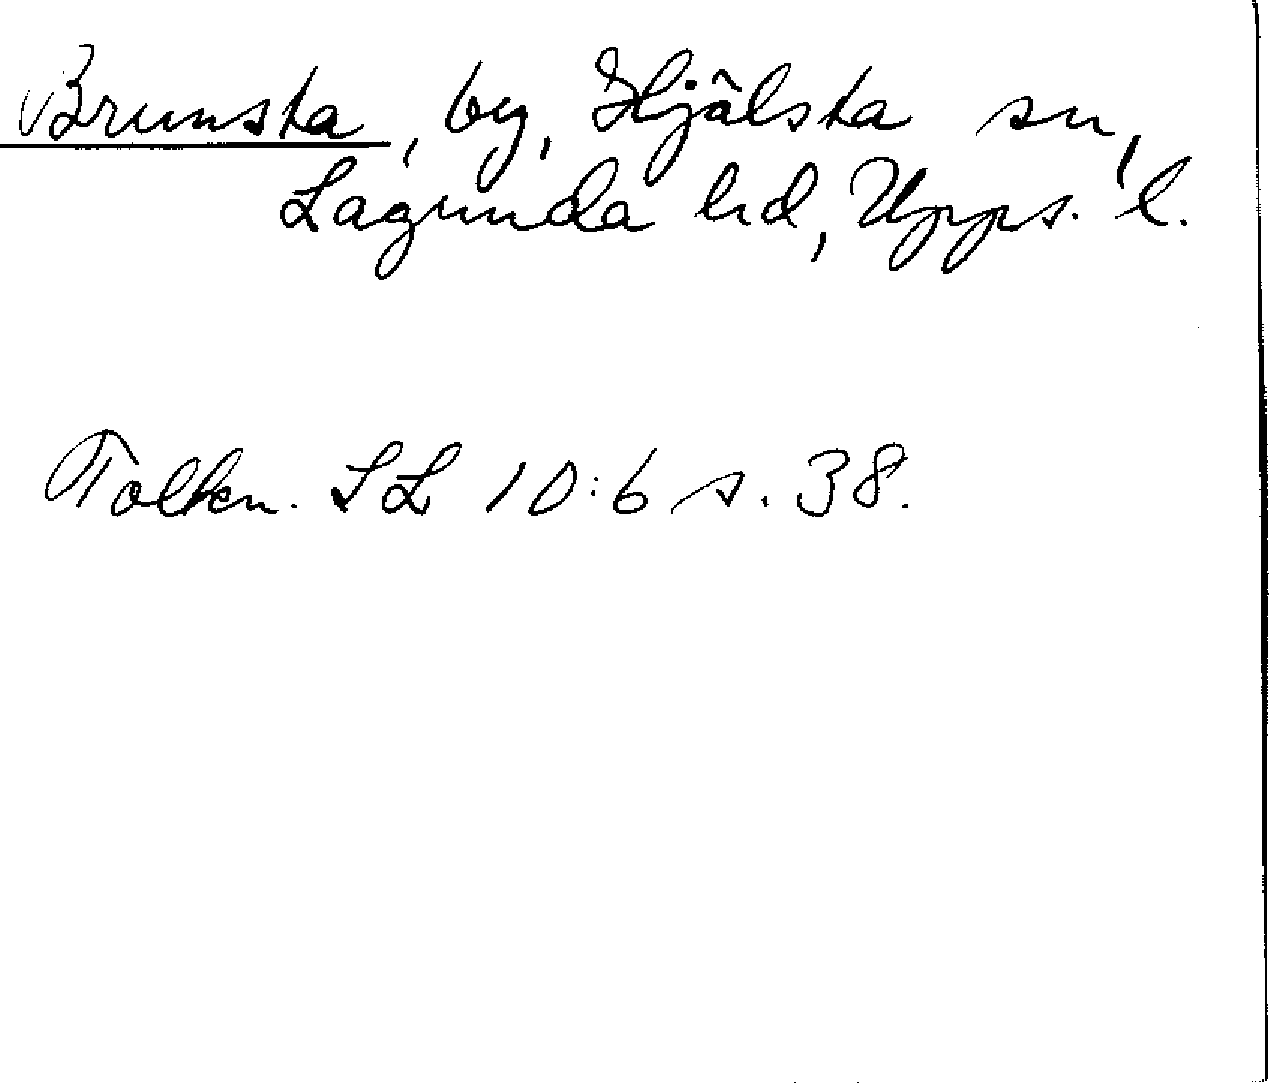 Brunsta, by, Hjälsta sn,
Lagunda hd, Upps. l.
Tolkn. SL 10:6 s. 38.